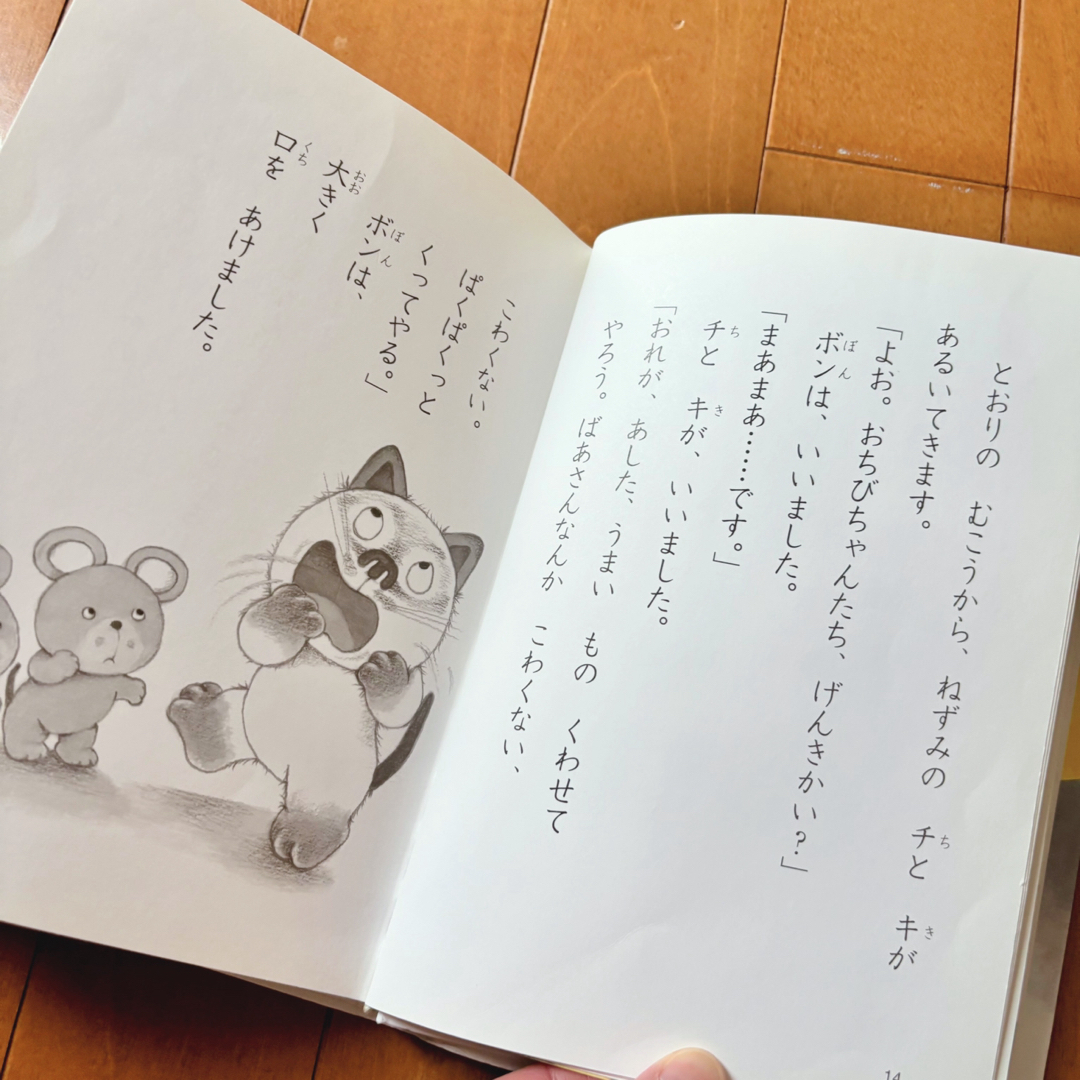 とおりの　むこうから、ねずみの　チと　キが
あるいてきます。
「よお。おちびちゃんたち、げんきかい？」
ボンは、いいました。
「まあまあ……です。」
チと　キが、いいました。
「おれが、あした、うまい　もの　くわせて
やろう。ばあさんなんか　こわくない、
こわくない。
ぱくぱくっと
くってやる。」
ボンは、
大きく
口を　あけました。
14